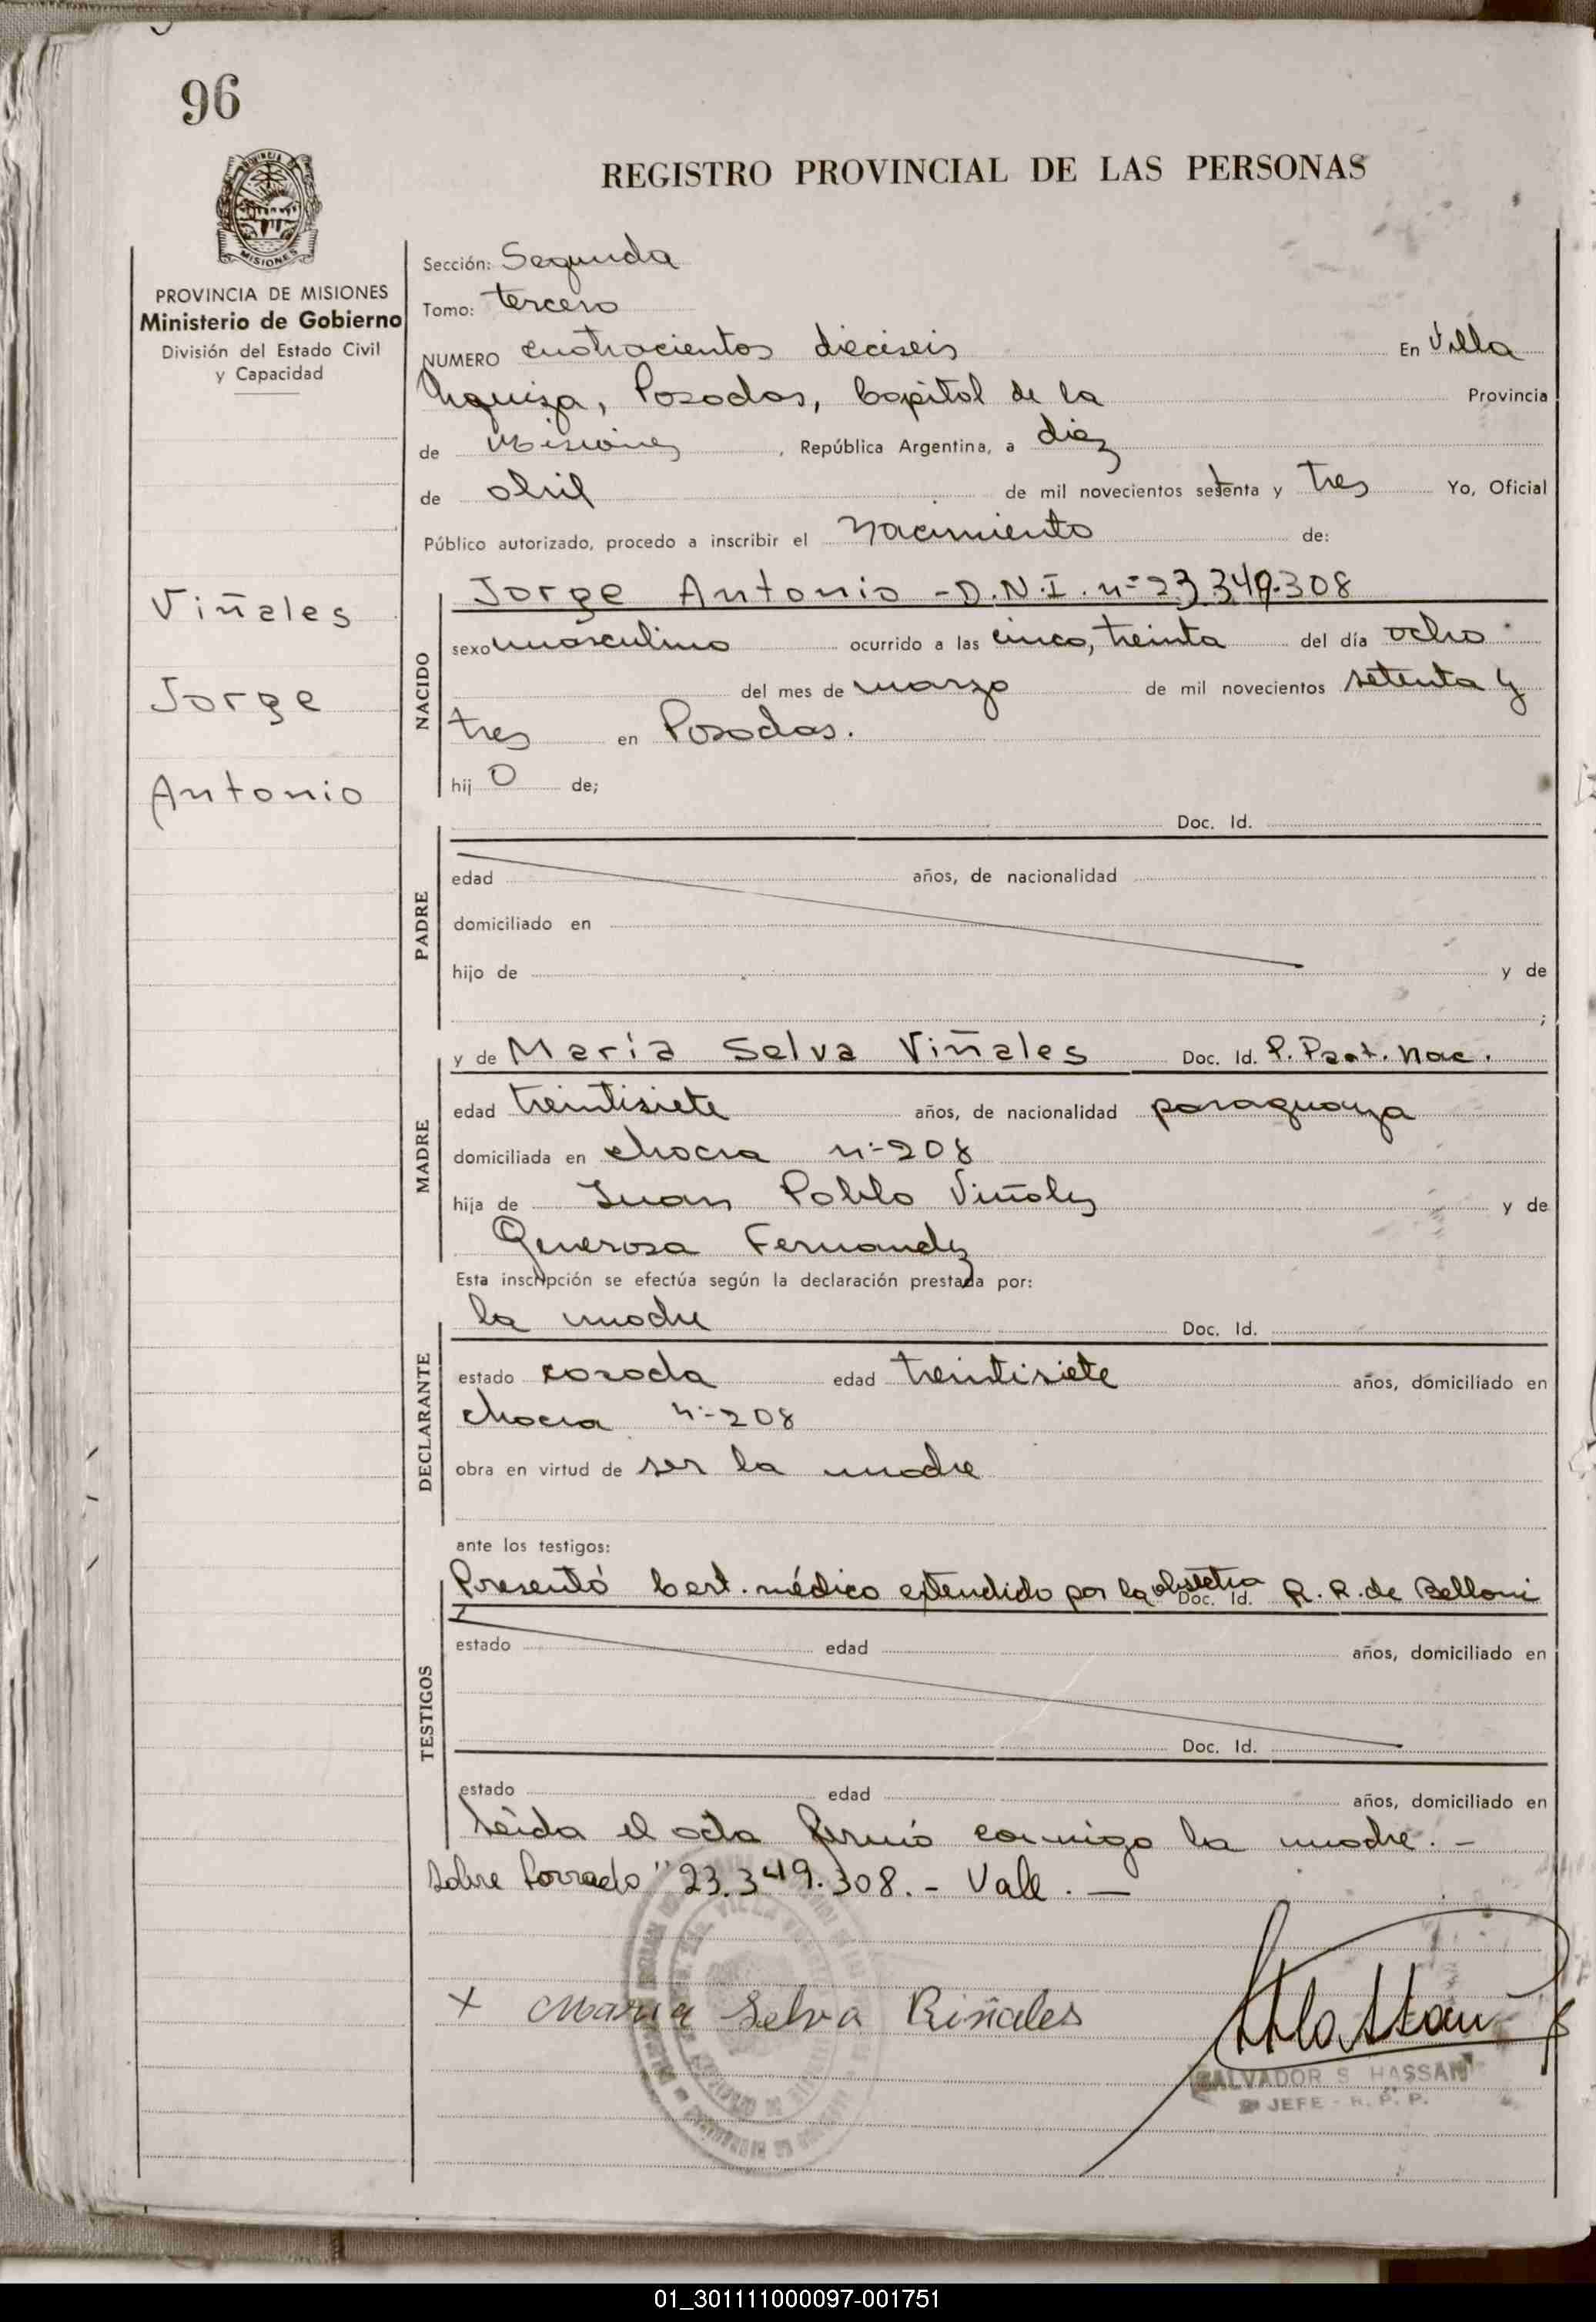 96
REGISTRO PROVINCIAL DE LAS PERSONAS
MISIONES
PROVINCIA DE MISIONES
Ministerio de Gobierno
División del Estado Civil
y Capacidad
Viñales
Jorge
Antonio
Sección: Segunda
Tomo: tercero
NUMERO cuatrocientos dieciseis En Villa
Urquiza, Posadas, Capital de la Provincia
de Misiones, República Argentina, a diez
de abril de mil novecientos setenta y tres Yo, Oficial
Público autorizado, procedo a inscribir el nacimiento de:
NACIDO
Jorge Antonio - D.N.I. nº 23.349.308
sexo masculino ocurrido a las cinco, treinta del día ocho
del mes de marzo de mil novecientos setenta y
tres en Posadas.
hijo de;
PADRE
Doc. Id.
edad años, de nacionalidad
domiciliado en
hijo de y de
;
MADRE
y de María Selva Viñales Doc. Id. P. Part. Nac.
edad treintisiete años, de nacionalidad paraguaya
domiciliada en chacra nº 208
hija de Juan Pablo Viñales y de
Generosa Fernandez
Esta inscripción se efectúa según la declaración prestada por:
DECLARANTE
la madre Doc. Id.
estado casada edad treintisiete años, domiciliado en
chacra nº 208
obra en virtud de ser la madre
ante los testigos:
TESTIGOS
Presentó Cert. médico extendido por la obstetra Doc. Id. R. R. de Belloni
estado edad años, domiciliado en
Doc. Id.
estado edad años, domiciliado en
Leída el acta firmó conmigo la madre. -
Sobre borrado "23.349.308. - Vale. -
x Maria Selva Viñales
SALVADOR S. HASSAN
JEFE - R. P. P.
01_301111000097-001751